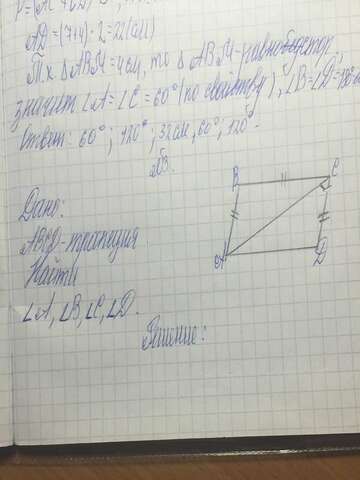 AD = (7+4)·2=22(см)
Тк ΔABM=4см, то ΔABM-равнобедрен
значит ∠A=∠C=60°(по свойству), ∠B=∠D=120°
Ответ: 60°; 120°; 32см, 60°, 120°.
№3.
Дано:
ABCD-трапеция
Найти
∠A, ∠B, ∠C, ∠D.
Решение:
B
C
A
D